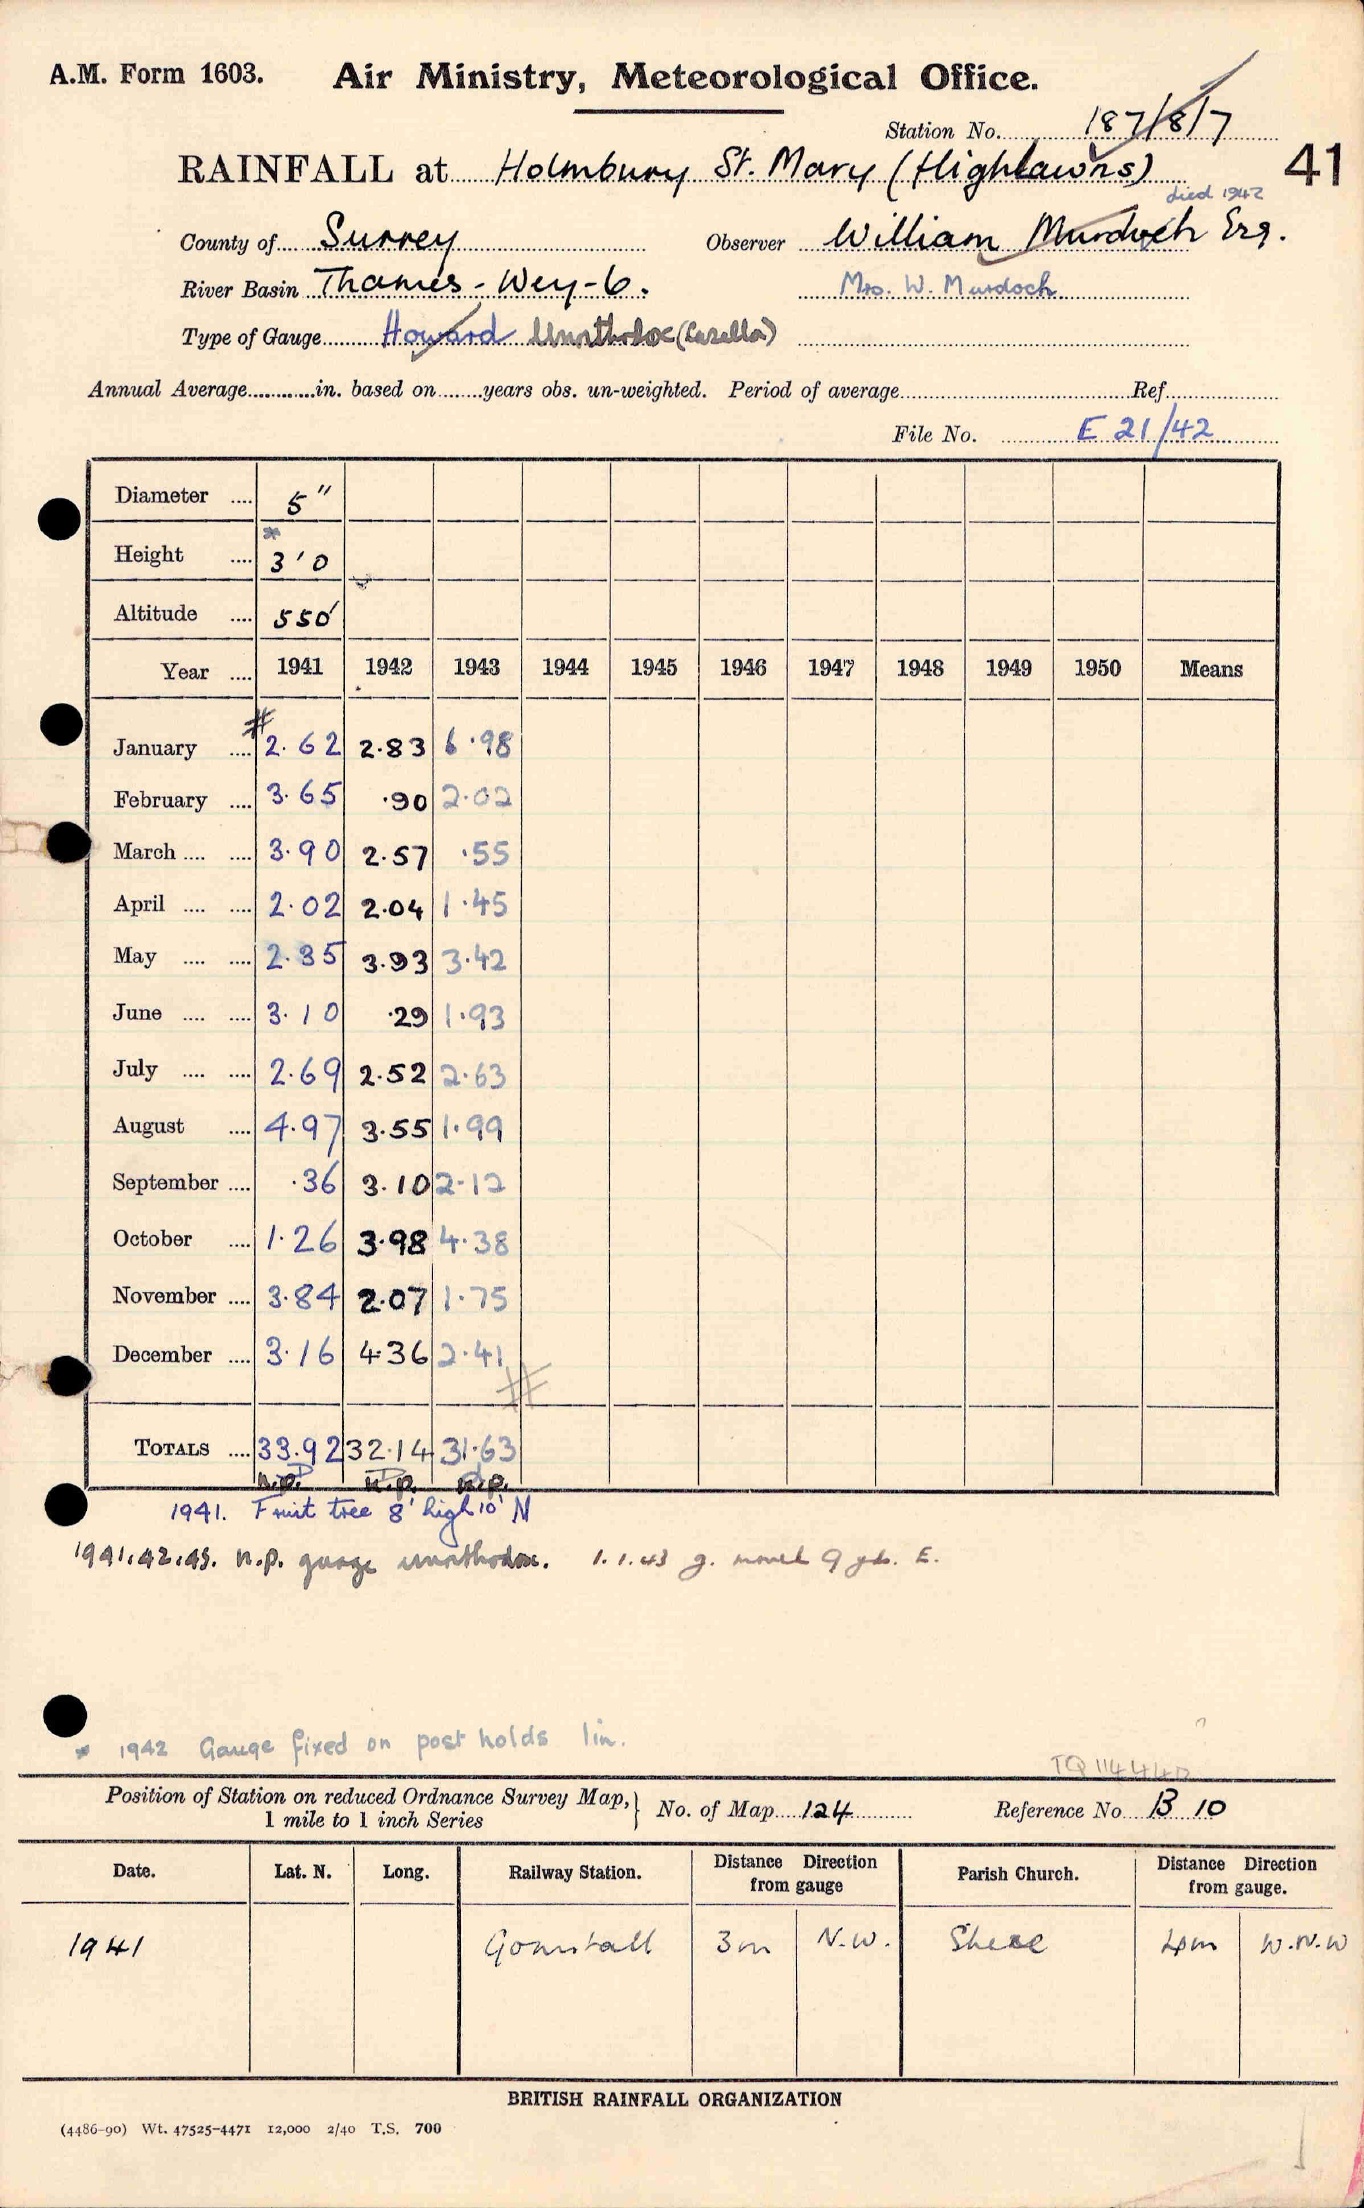 A.M. Form 1603. Air Ministry, Meteorological Office.
Station No. 187/8/7
RAINFALL at Holmbury St. Mary (Highlawns) 41
died 1942
County of Surrey Observer William Murdoch Esq.
River Basin Thames - Wey - 6. Mrs. W. Murdoch
Type of Gauge Howard Unorthodox (Casella)
Annual Average in. based on years obs. un-weighted. Period of average Ref.
File No. E 21/42
Diameter 5"
*
Height 3'0
Altitude 550'
Year 1941 1942 1943 1944 1945 1946 1947 1948 1949 1950 Means
#
January 2.62 2.83 6.98
February 3.65 .90 2.02
March 3.90 2.57 .55
April 2.02 2.04 1.45
May 2.35 3.93 3.42
June 3.10 .29 1.93
July 2.69 2.52 2.63
August 4.97 3.55 1.99
September .36 3.10 2.12
October 1.26 3.98 4.38
November 3.84 2.07 1.75
December 3.16 4.36 2.41
#
TOTALS 33.92 32.14 31.63
n.p. n.p. n.p.
1941. Fruit tree 8' high 10' N
1941.42.43. n.p. gauge unorthodox. 1.1.43 g. moved 9 yds. E.
* 1942 Gauge fixed on post holds 1in.
TQ 114440
Position of Station on reduced Ordnance Survey Map, 1 mile to 1 inch Series } No. of Map 124 Reference No. B 10
Date. Lat. N. Long. Railway Station. Distance Direction from gauge Parish Church. Distance Direction from gauge.
1941 Gomshall 3m N.W. Shere 4m W.N.W
BRITISH RAINFALL ORGANIZATION
(4486-90) Wt. 47525-4471 12,000 2/40 T.S. 700